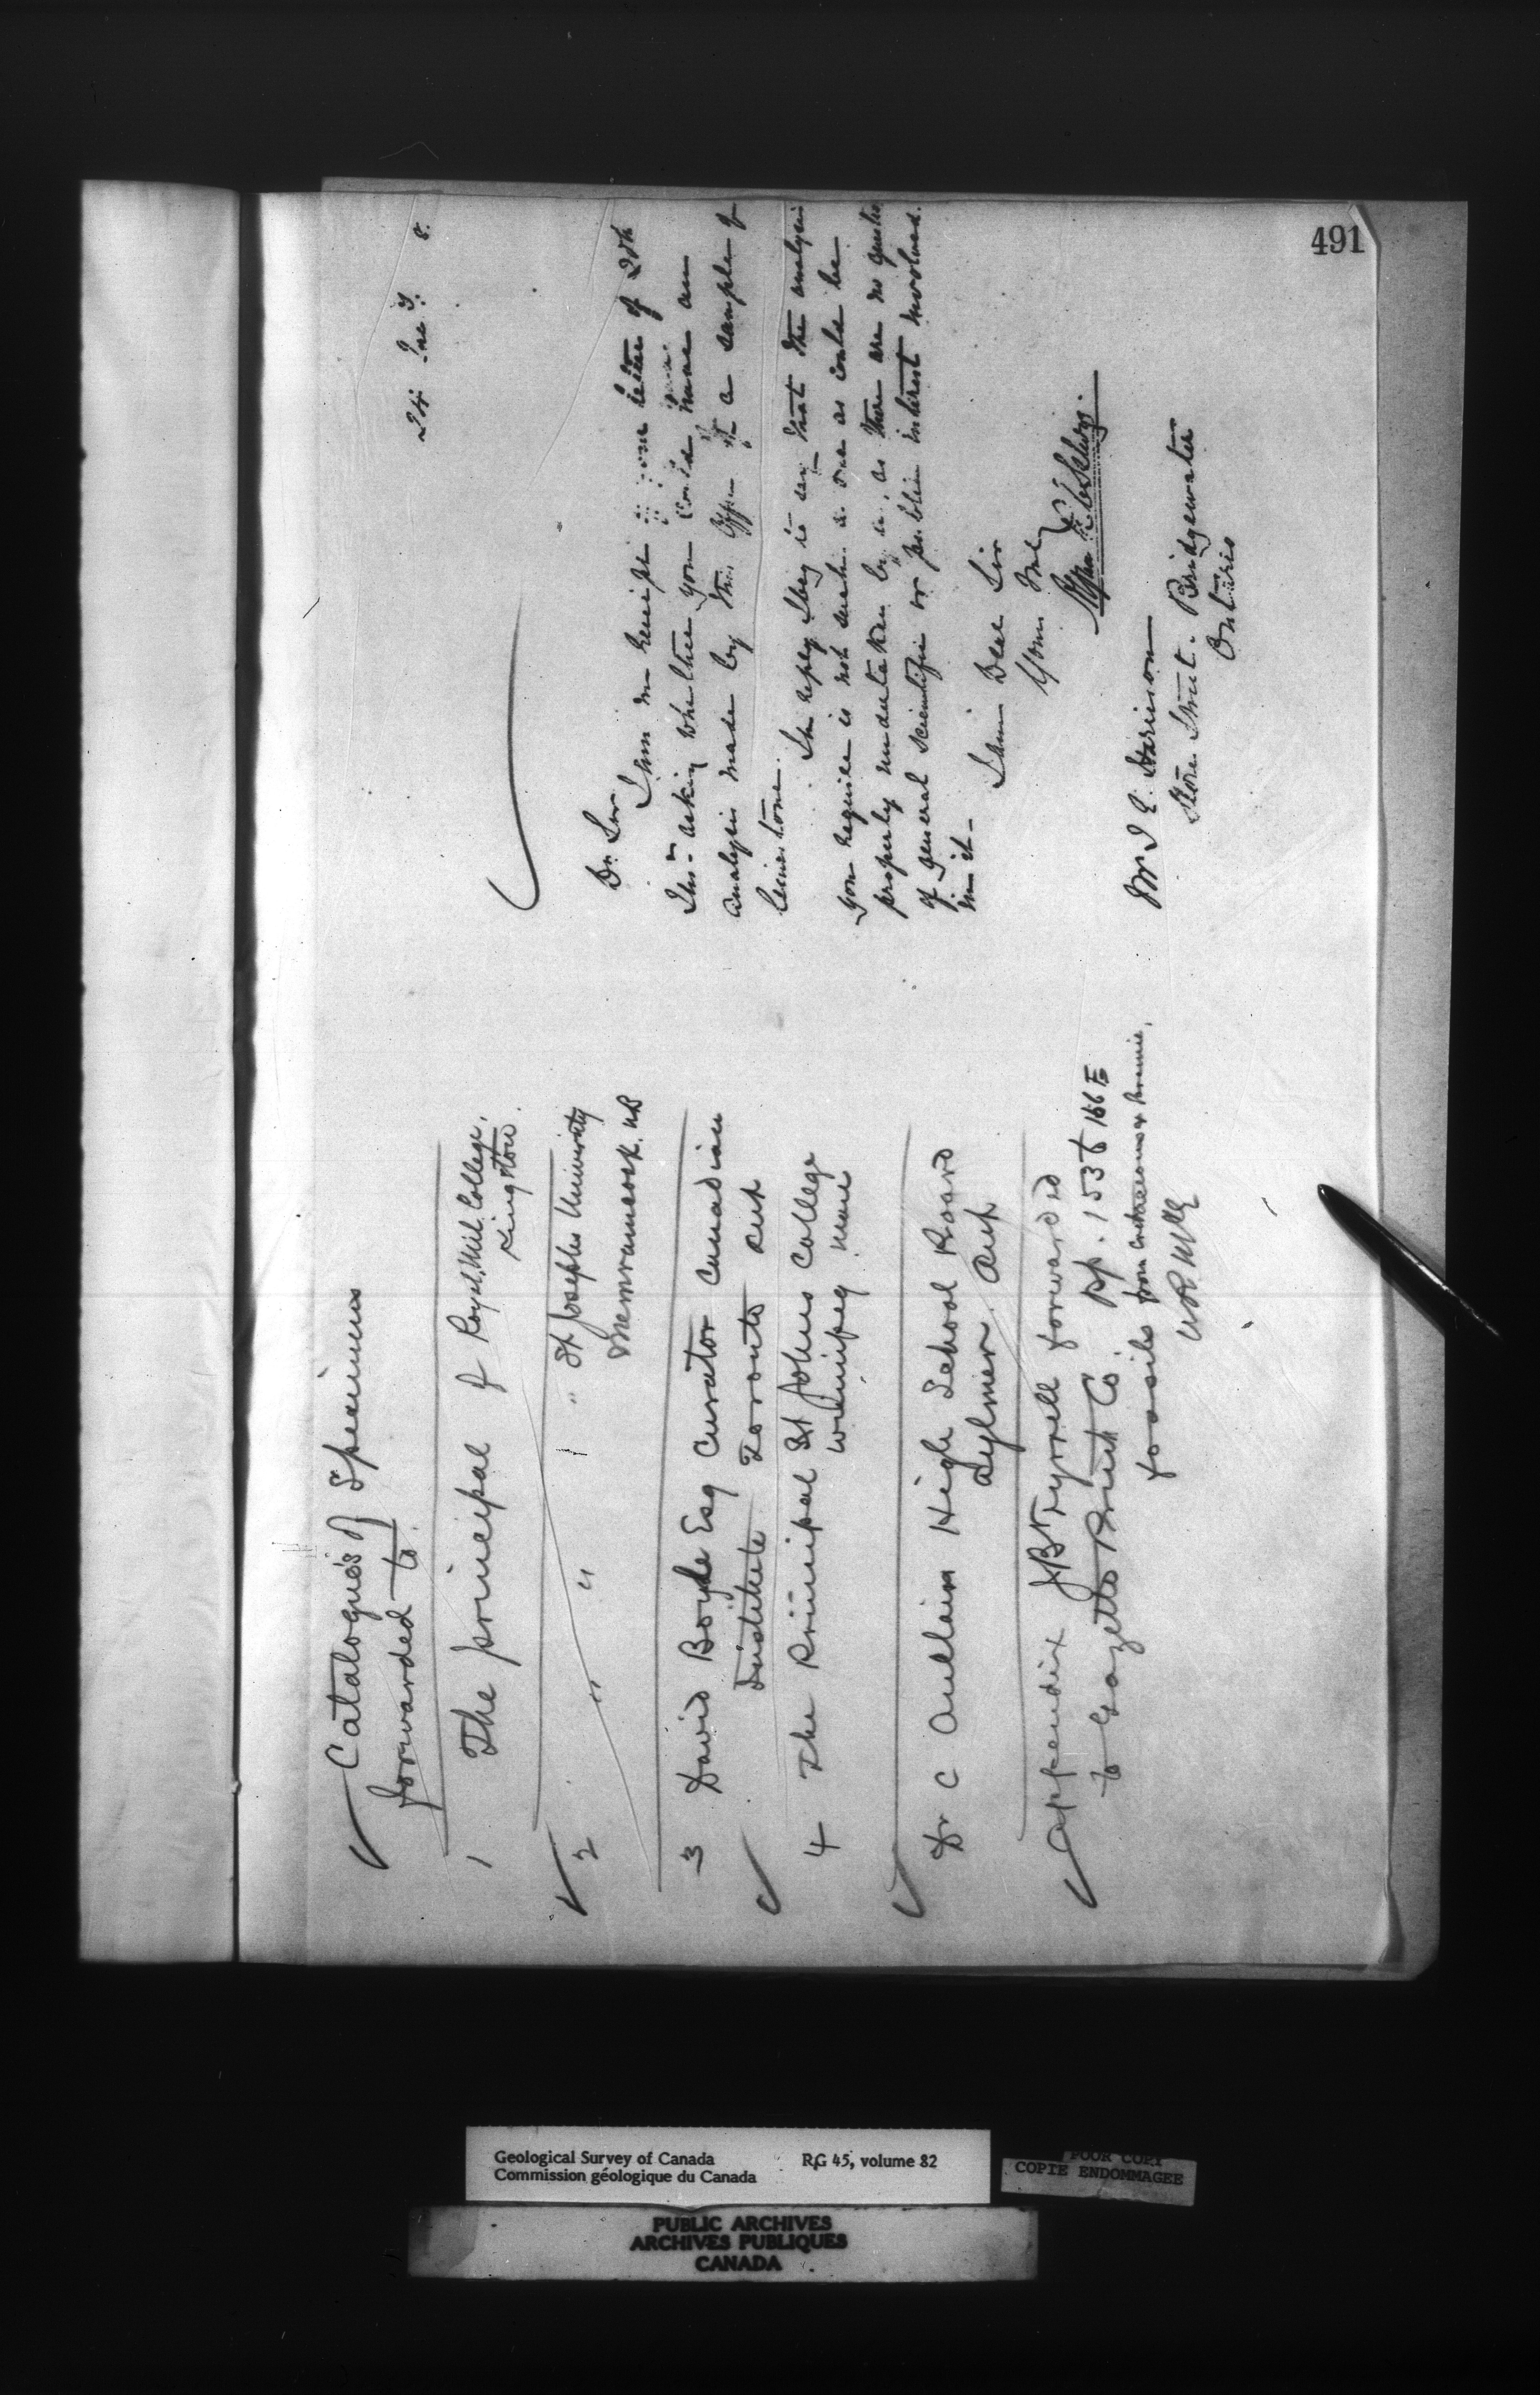 491
Catalogue's of Specimens
forwarded to
1 The principal of Royal Mil. College,
Kingston.
2 " " " " St Josephs University
Memramcook. NB
3 David Boyle Esq Curator Canadian
Institute Toronto Ont
4 The Principal St Johns College
Winnipeg Man
Dr C High School Board
Aylmer. Ont
Appendix JB Tyrrell forwarded
to Gazette Print Co. pp. 153 to 166 E
fossils from Cretaceous &
24 8.
Dr. Sir
I am in receipt of your letter of
asking whether you could have an
Analysis made by this Office of a sample of
limestone.
In reply I beg to say that the analysis
you require is not such a one as could be
properly undertaken by us, as there are no
of general scientific or public interest involved
in it-
I am Dear Sir
Yours
Harrison
Store Street. Bridgewater
Ontario
Geological Survey of Canada RG 45, volume 82
Commission géologique du Canada
POOR COPY
COPIE ENDOMMAGEE
PUBLIC ARCHIVES
ARCHIVES PUBLIQUES
CANADA